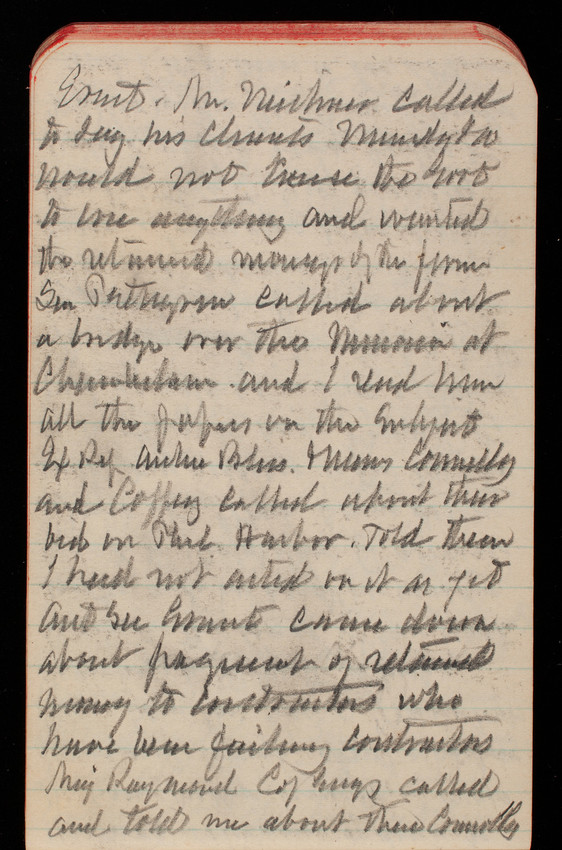 Grant. Mr. called
to say his clients Mundy & Co
would not the Govt
to lose anything and wanted
the retained moneys of the firm
Sen Pettigrew called about
a bridge over the Missouri at
Chamberlain and I read him
all the papers on the subject
Ex Rep Archie Bliss. Messrs Connolly
and Coffey called about their
bid on Phil. Harbor. Told them
I had not acted on it as yet
Asst Sec Grant came down
about payment of retained
money to contractors who
have been failing contractors
Maj Raymond Cof Engs called
and told me about these Connolly